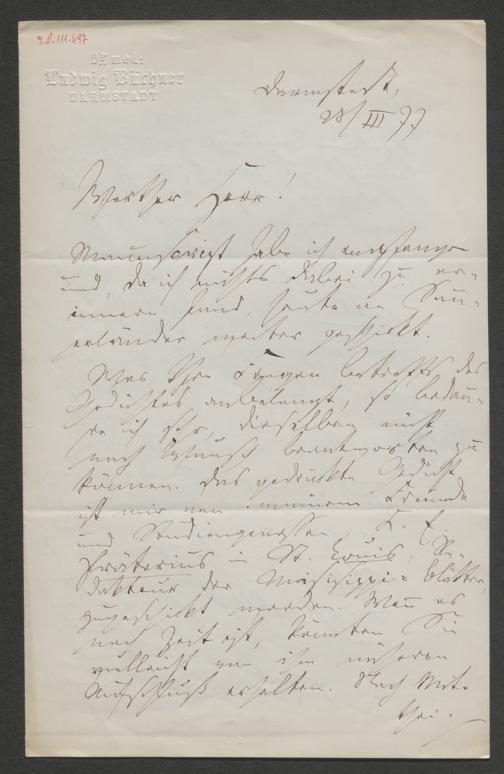 Dr. med:
Ludwig Büchner
DARMSTADT
Darmstadt,
28/III 77
Werther Herr!
Manuscript habe ich empfangen
und, da ich nichts dabei zu er-
innern fand, heute an Sau-
erländer weiter geschickt.
Was Ihre Fragen betreffs des
Gedichtes anbelangt, so bedau-
re ich sehr, dieselben nicht
nach Wunsch beantworten zu
können. Das gedruckte Gedicht
ist mir von meinem Freunde
und Studiengenossen,
Prätorius in St. Louis, Re-
dakteur der Missisippi-Blätter,
zugeschickt worden. Wenn es
noch Zeit ist, könnten Sie
vielleicht von ihm näheren
Aufschluß erhalten. Nach Mit-
thei-